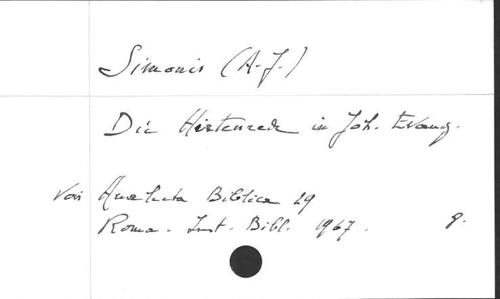 Simonis (A.-J.)
Die Hirtenrede in Joh. Evang.
Voir Analecta Biblica 29
Roma. Inst. Bibl. 1967. 8.